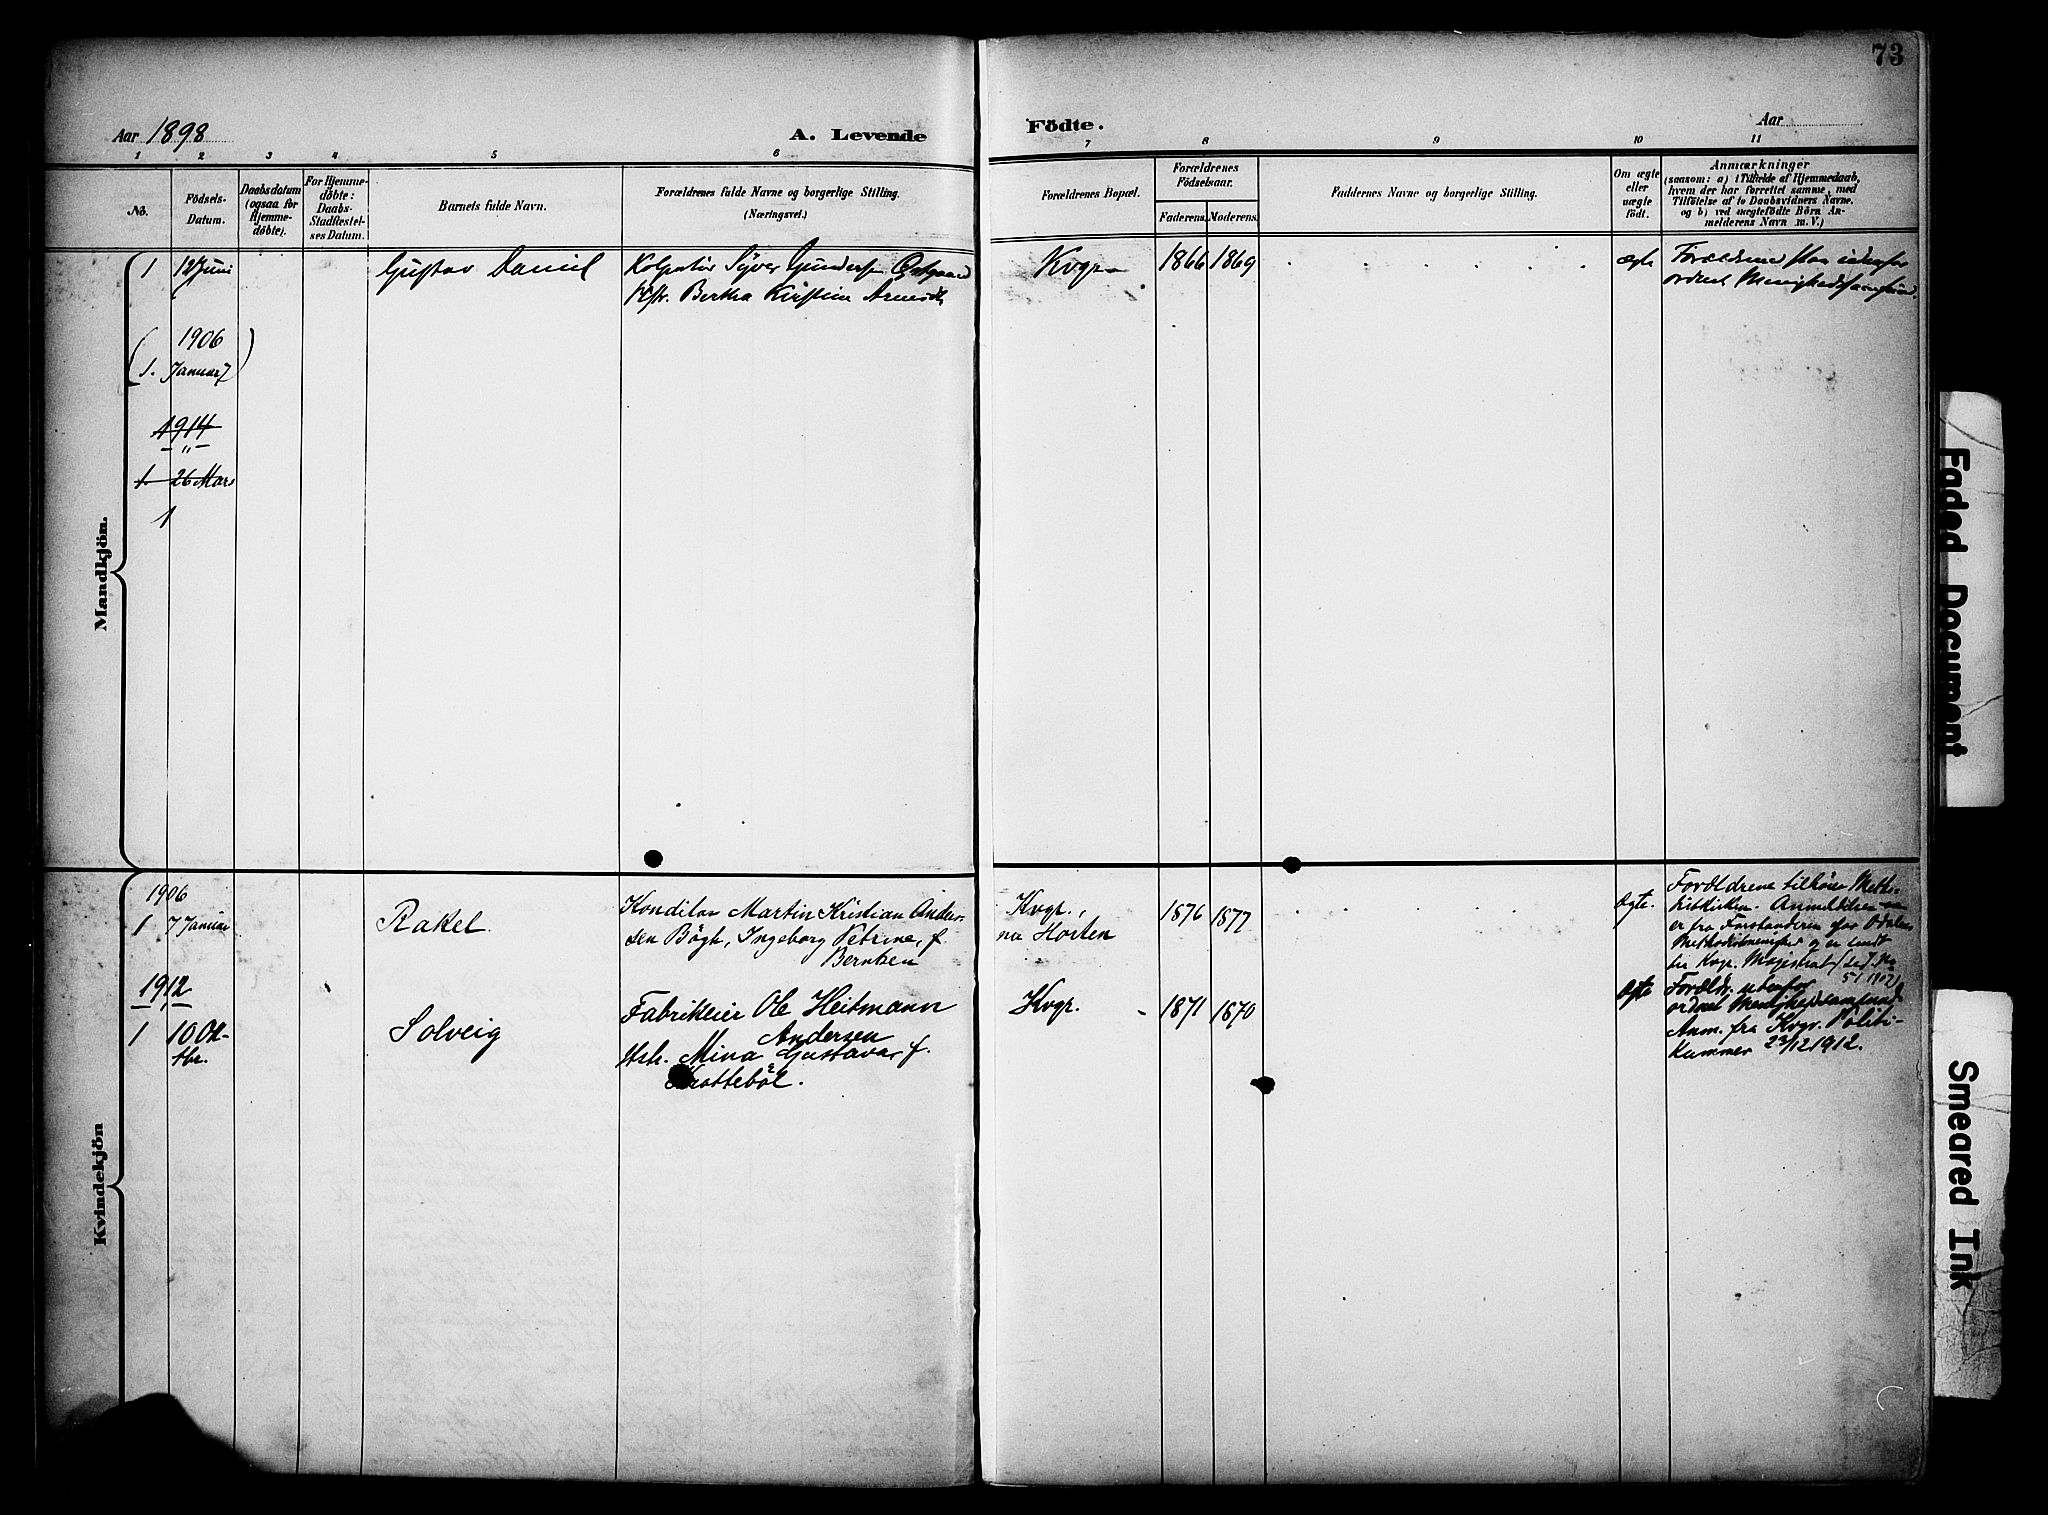 73
Aar 1898
A. Levende
Födte.
Aar
1 2 3 4 5 6 7 8 9 10 11
No.
Födsels-
Datum.
Daabsdatum
(ogsaa for
Hjemme-
döbte).
For Hjemme-
döbte:
Daabs-
Stadfæstel-
ses Datum.
Barnets fulde Navn.
Forældrenes fulde Navne og borgerlige Stilling.
(Næringsvei.)
Forældrenes Bopæl.
Forældrenes
Födselsaar.
Faderens.
Moderens.
Faddernes Navne og borgerlige Stilling.
Om ægte
eller
uægte
födt.
Anmærkninger
(saasom: a) i Tilfælde af Hjemmedaab,
hvem der har forrettet samme, med
Tilföielse af to Daabsvidners Navne,
og b) ved uægtefödte Börn An-
melderens Navn m. V.)
Mandkjön.
1 12 Juni Gustav Daniel Syver
Bertha Kirstine
Kvgr. 1866 1869 ægte Forældrene
1906
1. Januar 7
1914
"
1. 26 Mars
1
Kvindekjön
1906
1 7 Januar Rakel. Konditor Martin Kristian Ander-
sen Bögh, Ingeborg Petrine, f.
Berntsen
Kvgr.,
nu Horten
1876 1877 Ægte. Forældrene tilhörer Metho-
distkirken. Anmeldelsen
er fra Forstanderen for Odalens
Methodistmenighet og er sendt
fra Kvgr. Magistrat
1912
1 10 Ok-
tbr.
Solveig Fabrikeier Ole Heitmann
Andersen
Hstr. Mina Gustava, f.
Krotteböl.
Kvgr. 1871 1870 Ægte Forældr. utenfor
ordnet Menighedssamfund
Anm. fra Kvgr. Politi-
Kammer 23/12 1912.
Faded Document
Smeared Ink